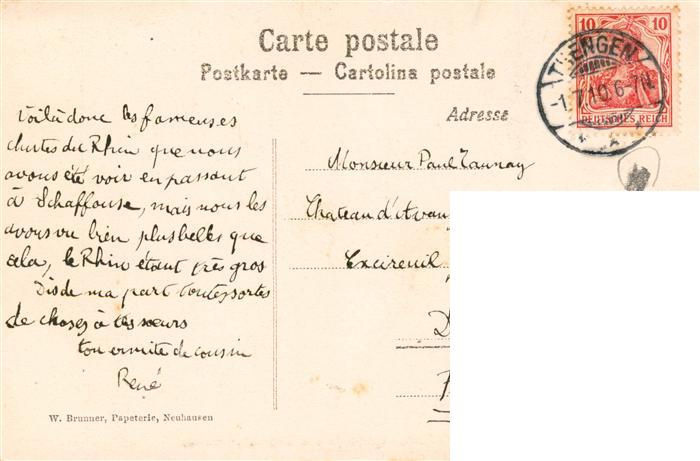 Carte postale
Postkarte — Cartolina postale
Adresse
10 10
DEUTSCHES REICH
TIENGEN
-1.7.10.6-7N.
Voilà donc les fameuses
chutes du Rhin que nous
avons été voir en passant
à Schaffouse, mais nous les
avons vu bien plus belles que
cela, le Rhin étant très gros
Dis de ma part toutes sortes
de choses à tes sœurs
ton ermite de cousin
René
W. Brunner, Papeterie, Neuhausen
Monsieur Paul Taunay
Chateau d'Avan
Excireuil
D